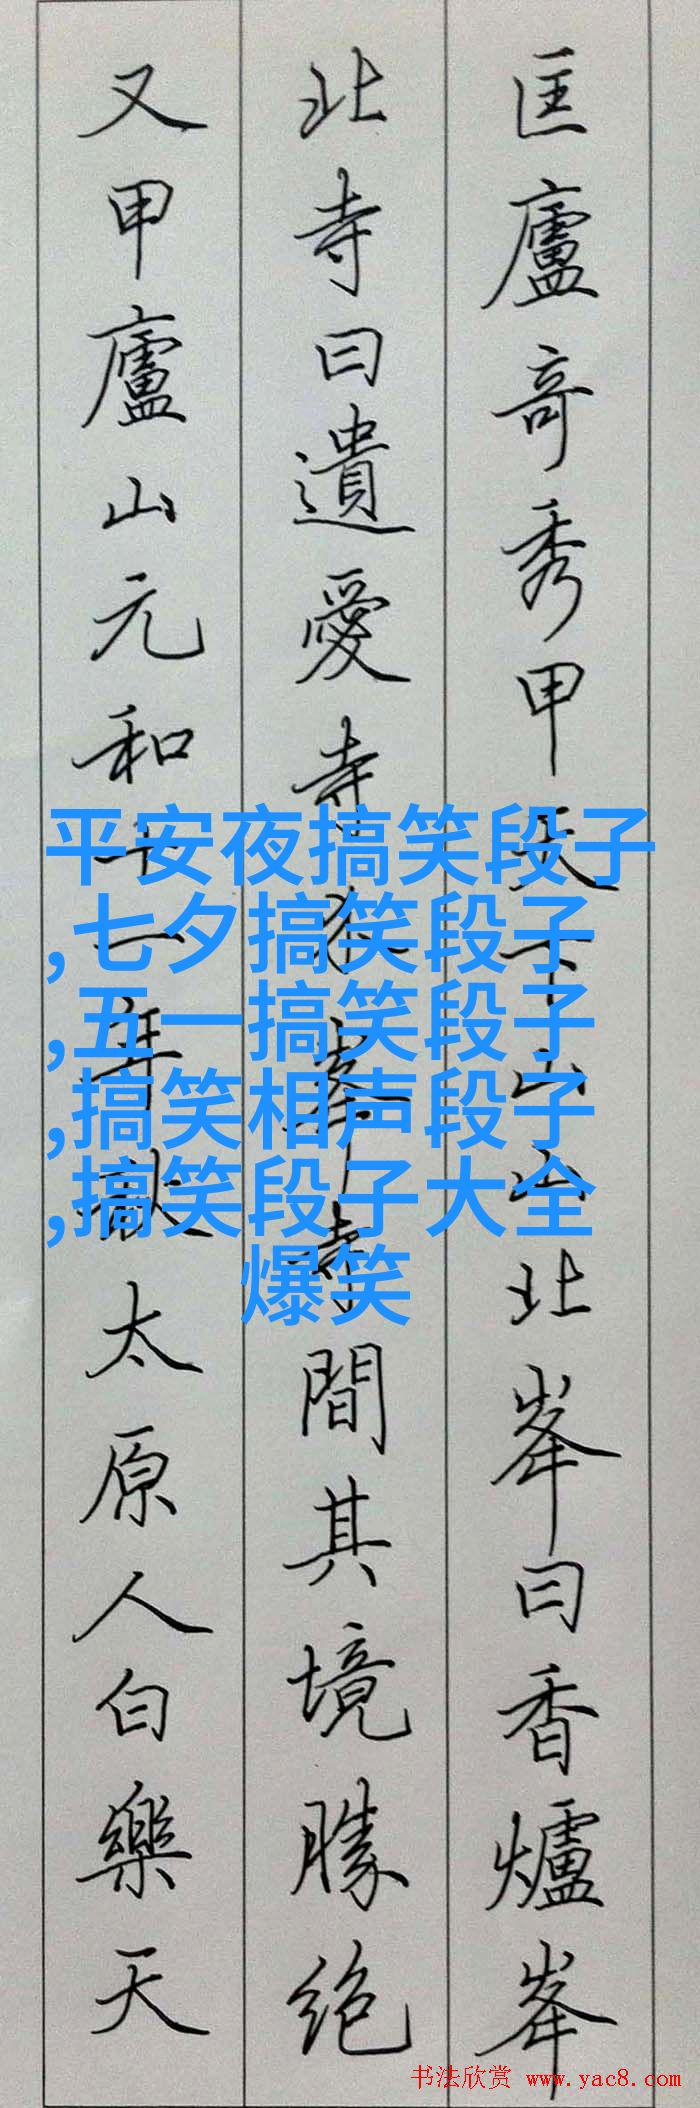 匡廬竒秀甲天下山山北峯曰香爐峯
北寺曰遺愛寺介峯寺間其境勝绝
又甲廬山元和十一年秋太原人白樂天
平安夜搞笑段子
,七夕搞笑段子
,五一搞笑段子
,搞笑相声段子
,搞笑段子大全
爆笑
书法欣赏 www.yac8.com